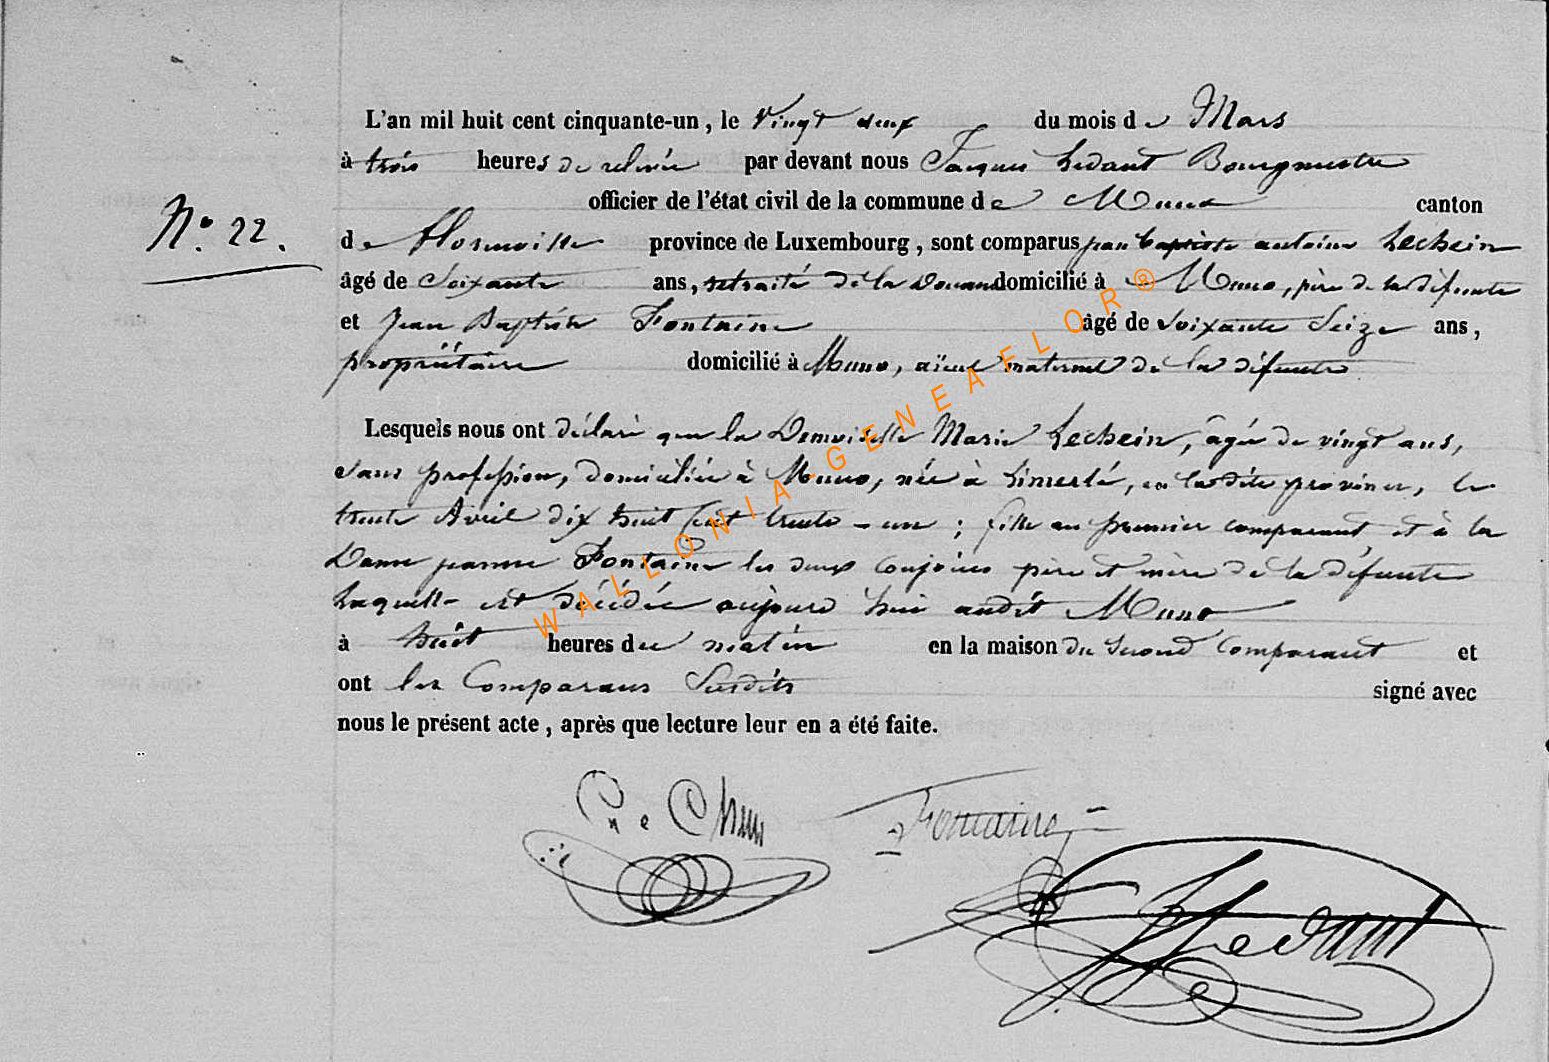 L'an mil huit cent cinquante-un, le Vingt deux du mois de Mars
à trois heures de relevée par devant nous Jacques Ledant Bourgmestre
officier de l'état civil de la commune de Muno canton
N.° 22.
de Florenville province de Luxembourg, sont comparus jean baptiste antoine Lechein
âgé de Soixante ans, retraité de la Douane domicilié à Muno, père de la défunte
et Jean Baptiste Fontaine âgé de Soixante Seize ans,
propriétaire domicilié à Muno, aïeul maternel de la défunte
Lesquels nous ont déclaré que la Demoiselle Marie Lechein, âgée de vingt ans,
sans profession, domiciliée à Muno, née à Limerlé, en ladite province, le
trente Avril dix huit Cent trente-un; fille au premier comparant et à la
Dame jeanne Fontaine les deux conjoints père et mère de la défunte
Laquelle est décédée aujourd hui audit Muno
à huit heures du matin en la maison du second Comparant et
ont les Comparans Susdits signé avec
nous le présent acte, après que lecture leur en a été faite.
Fontaine
Ledant
WALLONIA-GENEAFLOR®